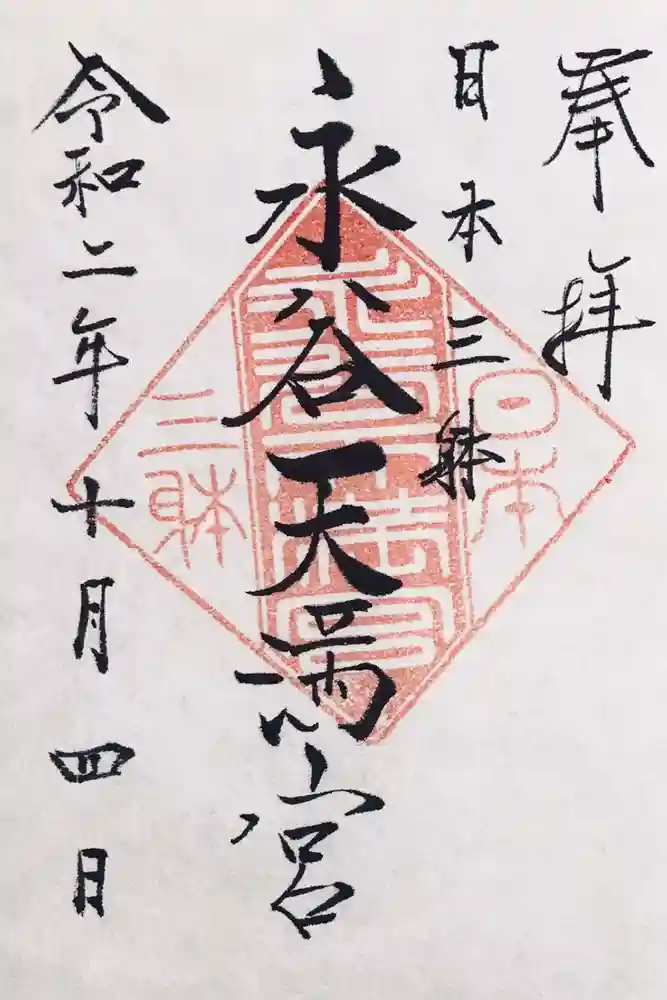 奉拝
日本三躰
永谷天満宮
令和二年十月四日
日本
永谷天満宮
三躰